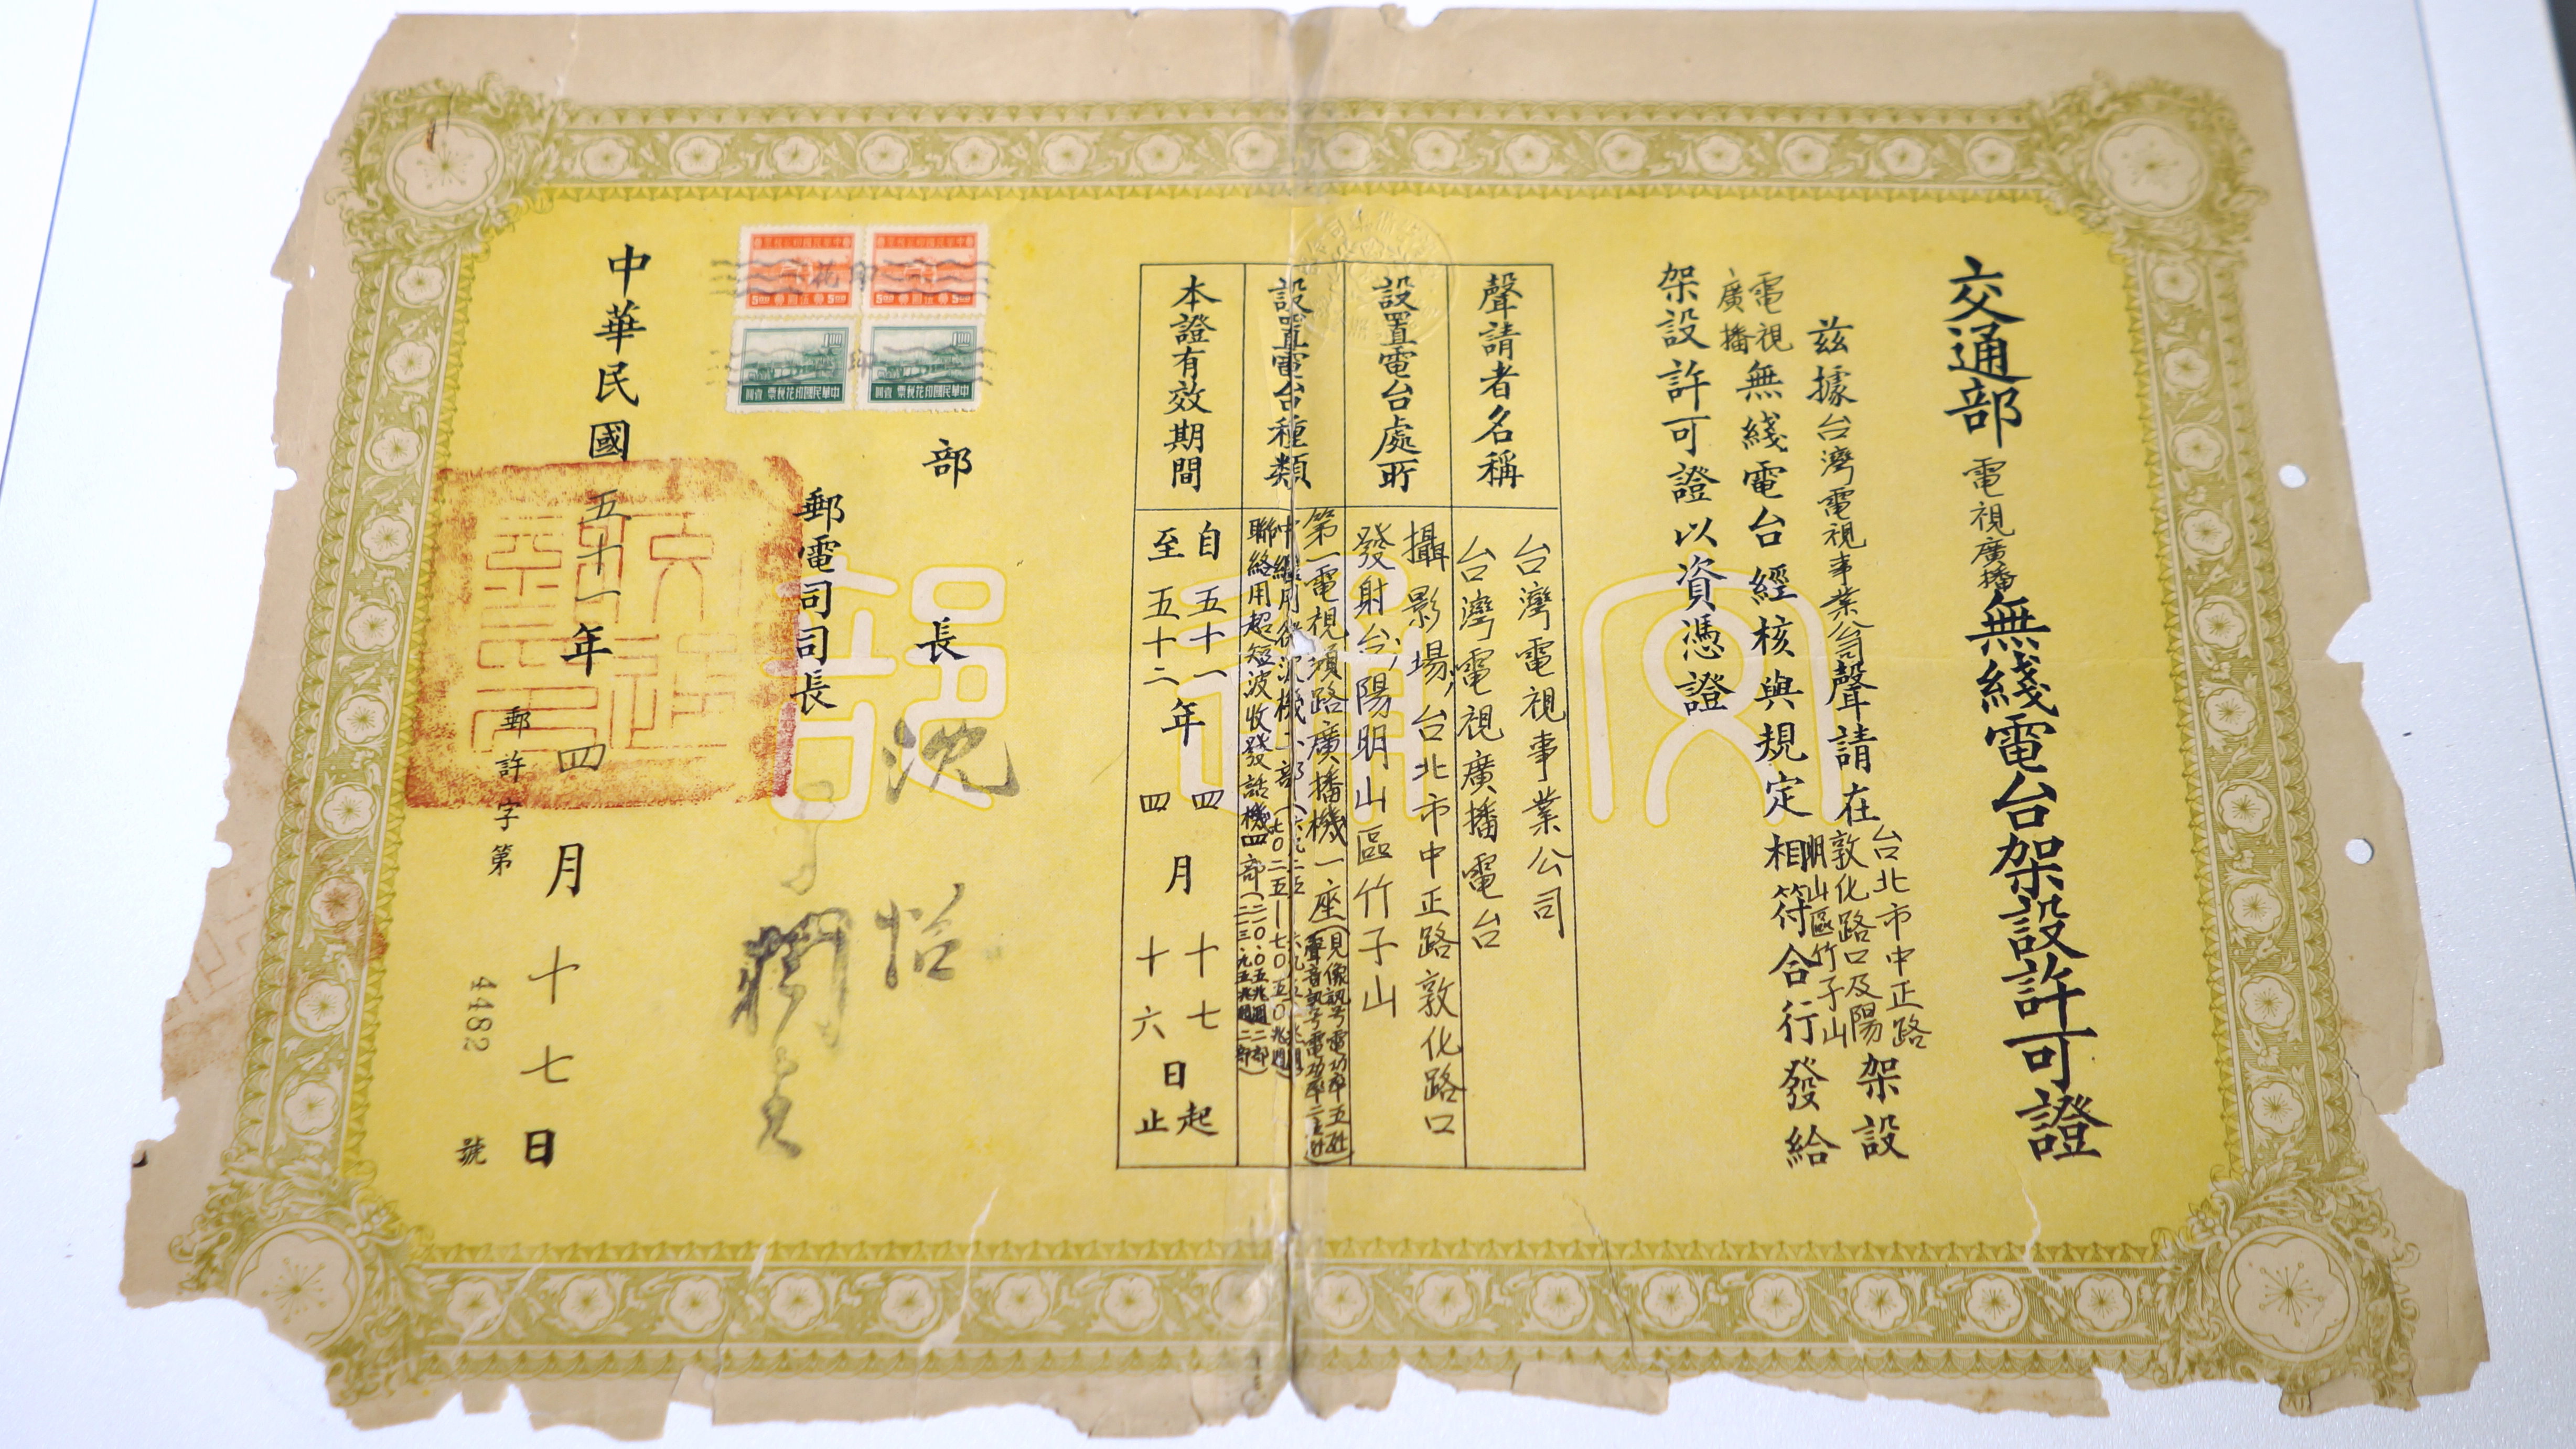 交通部電視廣播無綫電台架設許可證
茲據台灣電視事業公司聲請在台北市中正路敦化路口及陽明山區竹子山架設
電視廣播無綫電台經核與規定相符合行發給
架設許可證以資憑證
聲請者名稱
台灣電視事業公司
台灣電視廣播電台
設置電台處所
攝影場:台北市中正路敦化路口
發射台:陽明山區竹子山
設置電台種類
第一電視頻路廣播機一座
聯絡用超短波收發話機四部
本證有效期間
自五十一年四月十七日起
至五十二年四月十六日止
部長 沈怡
郵電司司長
中華民國五十一年四月十七日
郵許字第4482號
中華民國印花稅票 壹圓
中華民國印花稅票 壹圓